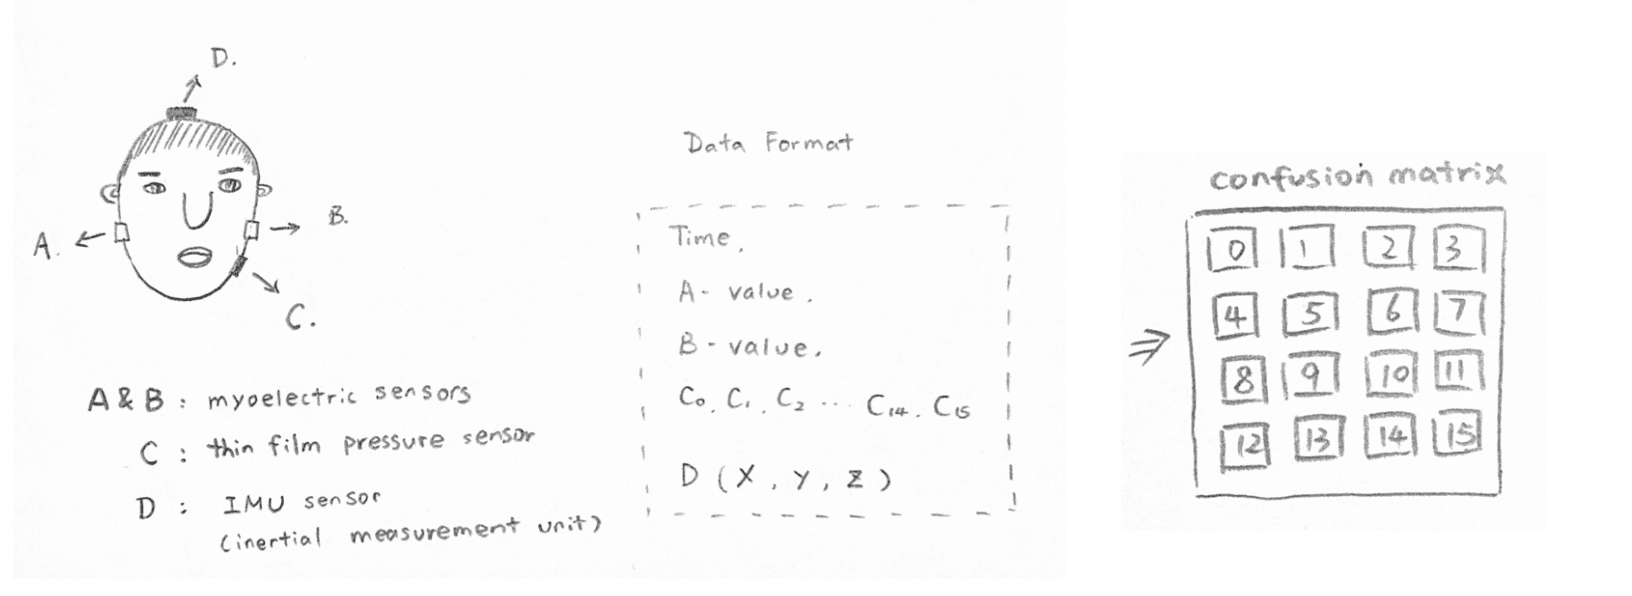 D.
A.
B.
C.
A & B : myoelectric sensors
C : thin film pressure sensor
D : IMU sensor
(inertial measurement unit)
Data Format
Time,
A- value.
B- value.
C0, C1, C2 ... C14, C15
D (X, Y, Z)
⇒
confusion matrix
0 1 2 3
4 5 6 7
8 9 10 11
12 13 14 15